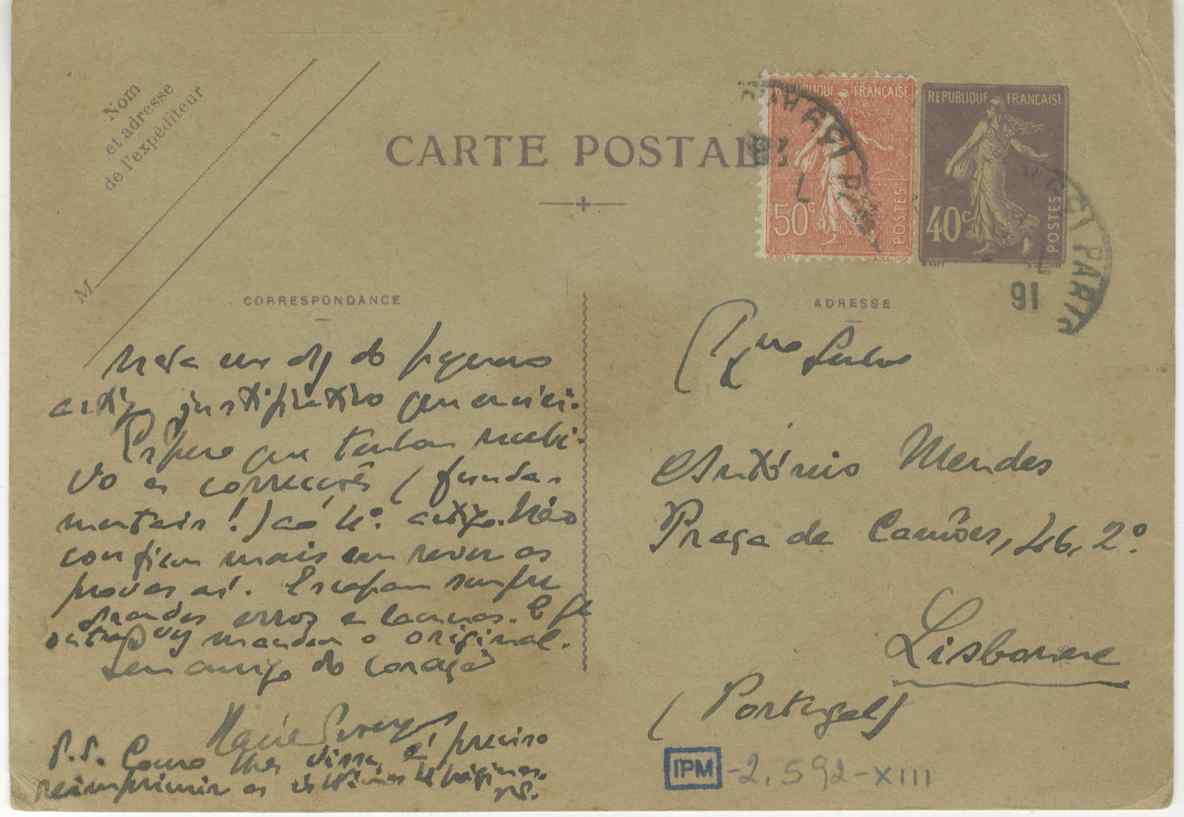 Nom
et adresse
de l'expéditeur
M
CARTE POSTALE
REPUBLIQUE FRANÇAISE
50c
POSTES
REPUBLIQUE FRANÇAISE
40c
POSTES
PARIS
16
CORRESPONDANCE
do pequeno
artigo justificativo que enviei.
Espero que tenham recebi-
do as correcções (funda-
mentais!) ao 4º artigo. Não
confiem mais em rever as
provas aí. Escapam sempre
grandes erros e lacunas. E
outra vez mandem o original.
Seu amigo do coração
P.S. Como lhes disse, é preciso
reimprimir as últimas 4 páginas.
ADRESSE
Exmo Senhor
António Mendes
Praça de Camões, 46, 2º
Lisbonne
(Portugal)
IPM - 2.592-XIII